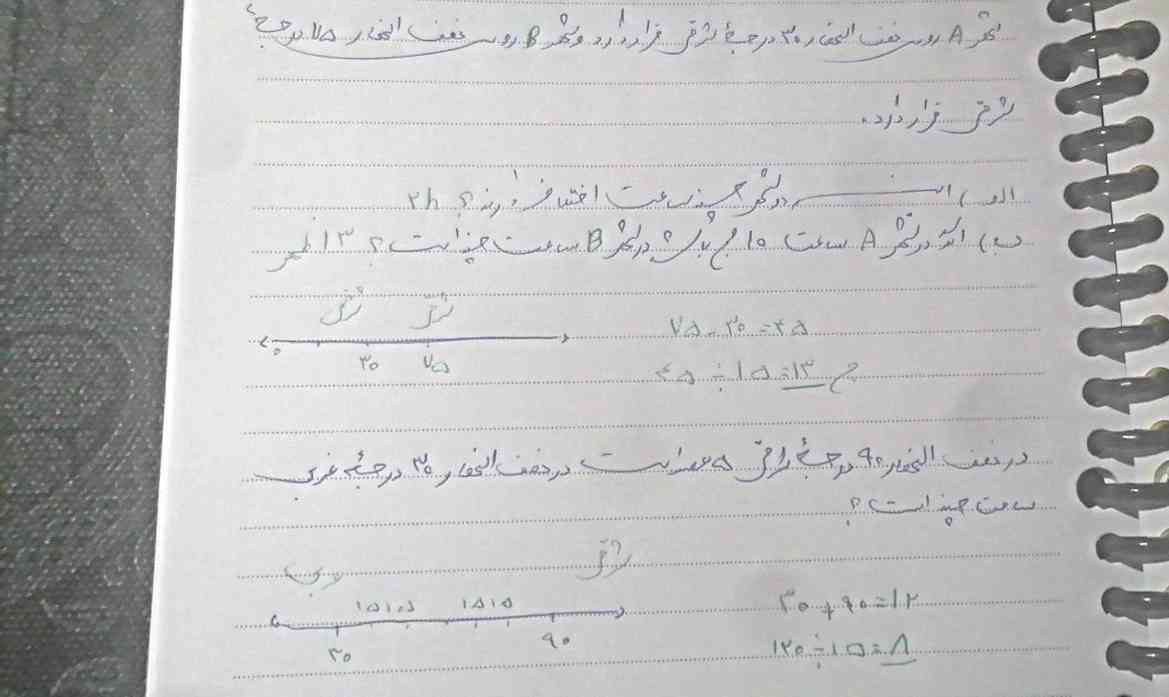 شهر A روی نصف النهار ۳۰ درجهٔ شرقی قرار دارد و شهر B روی نصف النهار ۷۵ درجهٔ
شرقی قرار دارد.
الف) این دو شهر چند ساعت اختلاف دارند؟ ۳h
ب) اگر در شهر A ساعت ۱۰ صبح باشد در شهر B ساعت چند است؟ ۱۳ ظهر
شرقی شرقی
۷۵ - ۳۰ = ۴۵
۰ ۳۰ ۷۵
۴۵ ÷ ۱۵ = ۳
در نصف النهار ۹۰ درجهٔ شرقی ۵ عصر است در نصف النهار ۳۰ درجهٔ غربی
ساعت چند است؟
شرقی
۱۵ ۱۵ ۱۵ ۱۵
۳۰ + ۹۰ = ۱۲
۳۰ ۹۰
۱۲۰ ÷ ۱۵ = ۸